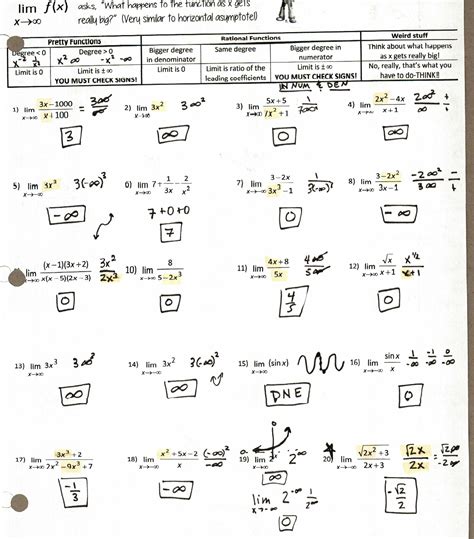 lim f(x) asks, "What happens to the function as x gets
x→∞ really big?" (Very similar to horizontal asymptote!)
Pretty Functions Rational Functions Weird stuff
Degree < 0 Degree > 0 Bigger degree in denominator Same degree Bigger degree in numerator Think about what happens as x gets really big!
x⁻² x⁻¹ x² ∞ -x² -∞
Limit is 0 Limit is ±∞ YOU MUST CHECK SIGNS! Limit is 0 Limit is ratio of the leading coefficients Limit is ±∞ YOU MUST CHECK SIGNS! No, really, that's what you have to do-THINK!!
IN NUM & DEN
1) lim x→∞ (3x-1000)/(x+100) = 3 2) lim x→∞ 3x² 3∞² 3) lim x→∞ (5x+5)/(7x²+1) 4) lim x→∞ (2x²-4x)/(x+1) 2∞²/∞ +/+
3 ∞ 0 ∞
5) lim x→-∞ 3x³ 3(-∞)³ 6) lim x→∞ 7+1/(3x)-2/x² 7) lim x→-∞ (3-2x)/(3x³-1) 8) lim x→∞ (3-2x²)/(3x-1) -2∞²/3∞ -/+
-∞ 7+0+0 0 -∞
7
lim x→∞ (x-1)(3x+2)/(x(x-5)(2x-3)) 3x²/2x³ 10) lim x→∞ 8/(5-2x³) 11) lim x→∞ (4x+8)/(5x) 4∞/5∞ 12) lim x→∞ √x/(x+1) x^(1/2)/x+1
0 0 4/5 0
13) lim x→∞ 3x³ 3∞³ 14) lim x→-∞ 3x² 3(-∞)² 15) lim x→∞ (sin x) 16) lim x→-∞ sin x/x 1/-∞ -1/-∞ 0/-∞
∞ ∞ DNE 0
17) lim x→∞ (3x³+2)/(7x²-9x³+7) 18) lim x→-∞ (x²+5x-2)/x (-∞)²/-∞ 19) lim x→∞ 2ˣ 2^∞ 20) lim x→-∞ √(2x²+3)/(2x+3) √2x/2x =
-1/3 -∞ ∞ -√2/2
lim x→-∞ 2^-∞ 1/2^∞
0